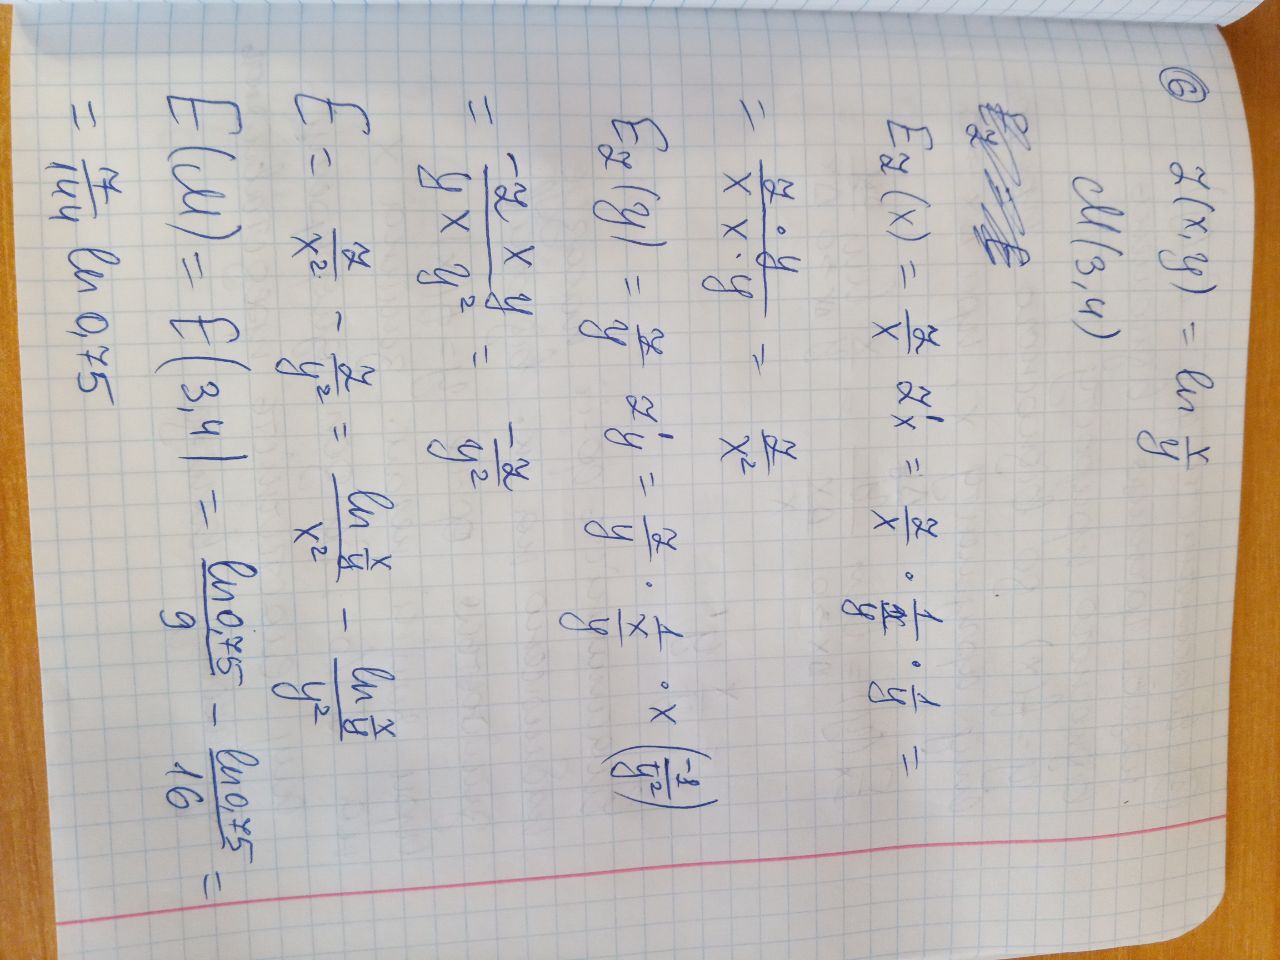 ⑥ z(x,y) = ln x/y
M(3,4)
E_z(x) = z/x z'x = z/x · 1/(x/y) · 1/y =
= (z · y)/(x x · y) = z/x²
E_z(y) = z/y z'y = z/y · 1/(x/y) · x (-1/y²)
= (-z x y)/(y x y²) = -z/y²
E = z/x² - z/y² = (ln x/y)/x² - (ln x/y)/y²
E(M) = E(3,4) = ln 0,75/9 - ln 0,75/16 =
= 7/144 ln 0,75